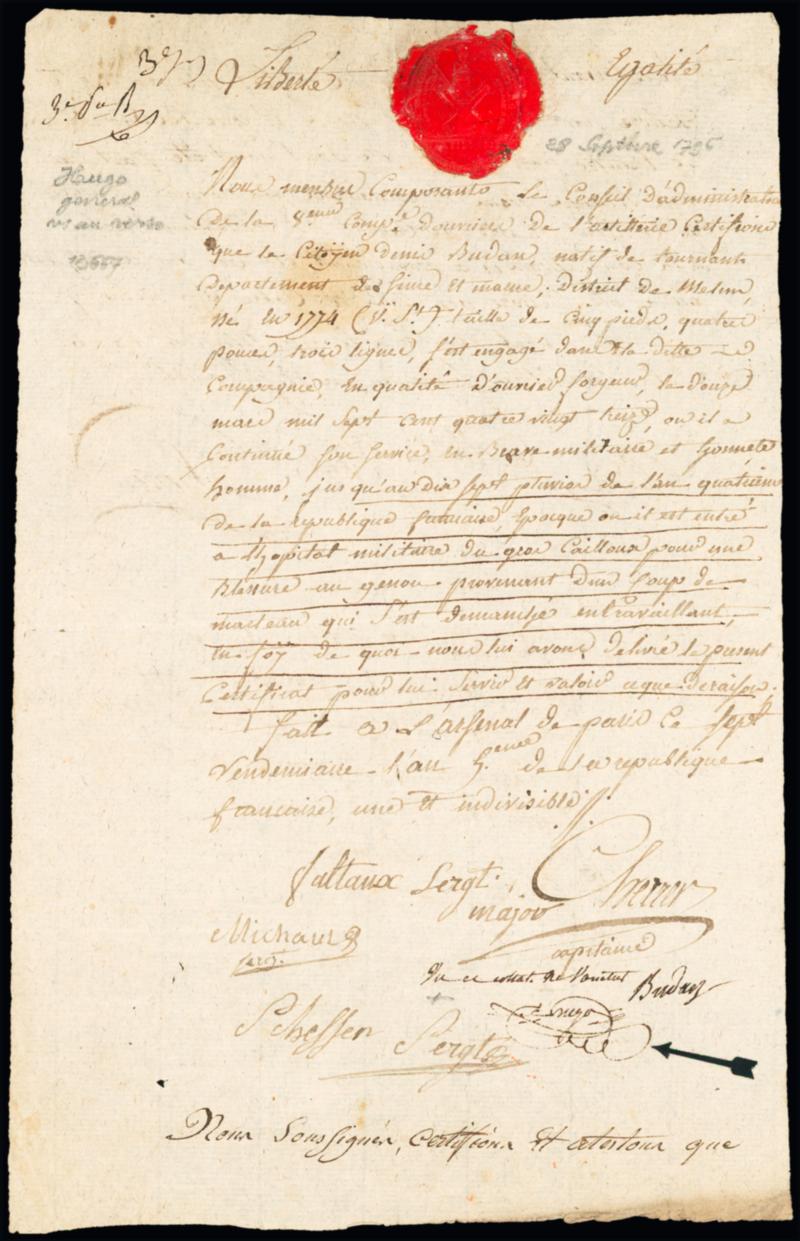 Liberté Egalité
28 Septbre 1796
Hugo
general
au verso
Nous membre Composants Le Conseil d'administration
De la 8.eme Comp.e d'ouvriers De L'artillerie Certifions
que Le Citoyen denis Budan, natif de tournans
Departement de Seine Et marne, District de Melun,
Né En 1774 (V. St.) taille de Cinq pieds, quatre
pouces, trois lignes, s'est engagé dans la ditte
Compagnie, En qualité D'ouvrier forgeur, le douze
mars mil Sept Cent quatre vingt treize, ou il a
Continué Son Service, en Brave militaire et honnete
homme, jusqu'au dix sept pluviose de l'an quatrieme
de la republique francaise, Epoque ou il est entré
a l'hopital militaire du gros Cailloux pour une
Blessure au genou provenant d'un Coup de
marteau qui S'est demanché en travaillant,
en foÿ de quoi nous lui avons delivré le present
Certificat pour lui Servir Et valoir a que de raison.
fait a L'arsenal de paris Ce Sept
Vendemiaire L'an 5.eme de La republique
francaise, une Et indivisible
faltaux Sergt.
major
Michaux
capitaine
Budan
Hugo
Schessen Sergt
Nous Soussignés, Certifions Et atestons que